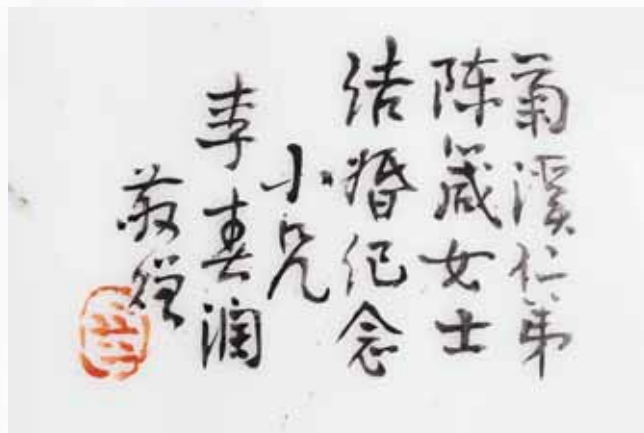 菊溪仁弟
陈箴女士
结婚纪念
小兄
李春润
敬贈